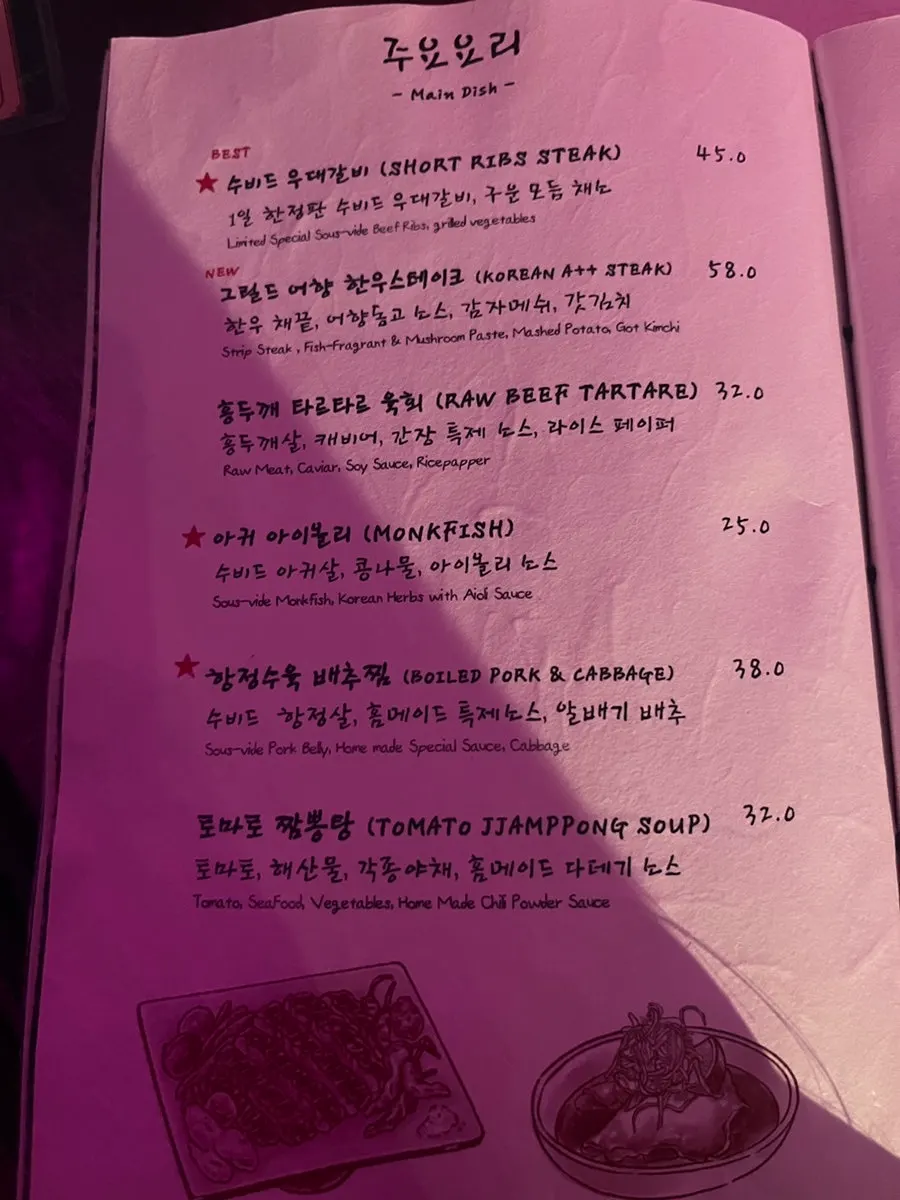 주요요리
- Main Dish -
BEST
★ 수비드 우대갈비 (SHORT RIBS STEAK) 45.0
1일 한정판 수비드 우대갈비, 구운 모듬 채소
Limited Special Sous-vide Beef Ribs, grilled vegetables
NEW
그릴드 어향 한우스테이크 (KOREAN A++ STEAK) 58.0
한우 채끝, 어향동고 소스, 감자메쉬, 갓김치
Strip Steak , Fish-Fragrant & Mushroom Paste, Mashed Potato, Got Kimchi
홍두깨 타르타르 육회 (RAW BEEF TARTARE) 32.0
홍두깨살, 캐비어, 간장 특제 소스, 라이스 페이퍼
Raw Meat, Caviar, Soy Sauce, Ricepapper
★ 아귀 아이올리 (MONKFISH) 25.0
수비드 아귀살, 콩나물, 아이올리 소스
Sous-vide Monkfish, Korean Herbs with Aioli Sauce
★ 항정수육 배추찜 (BOILED PORK & CABBAGE) 38.0
수비드 항정살, 홈메이드 특제소스, 알배기 배추
Sous-vide Pork Belly, Home made Special Sauce, Cabbage
토마토 짬뽕탕 (TOMATO JJAMPPONG SOUP) 32.0
토마토, 해산물, 각종야채, 홈메이드 다데기 소스
Tomato, SeaFood, Vegetables, Home Made Chili Powder Sauce